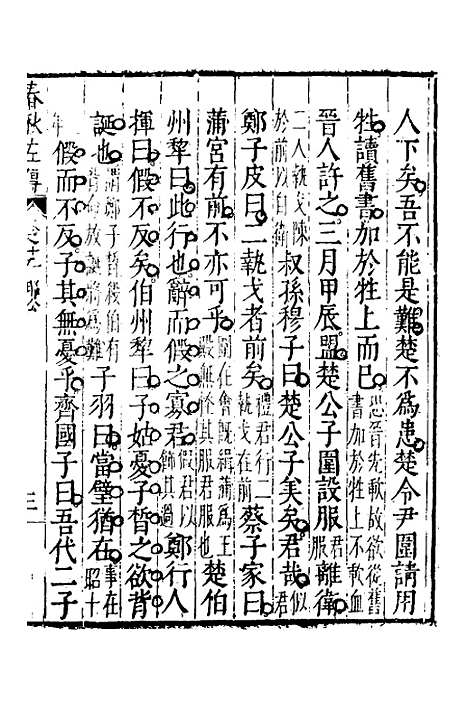 人下矣吾不能是難楚不為患楚令尹圍請用
牲讀舊書加於牲上而已恐晉先歃故欲從舊書加於牲上不歃血
晉人許之三月甲辰盟楚公子圍設服離衛
二人執戈陳於前以自衛叔孫穆子曰楚公子美矣君哉似君
鄭子皮曰二執戈者前矣禮君行二執戈在前蔡子家曰
蒲宮有前不亦可乎圍在會既緝蒲為王殿無恠其服君服也楚伯
州犂曰此行也辭而假之寡君假君以飾其過鄭行人
揮曰假不反矣伯州犂曰子姑憂子晳之欲背
誕也子羽曰當璧猶在事在昭十
假而不反子其無憂乎齊國子曰吾代二子
春秋左傳 三